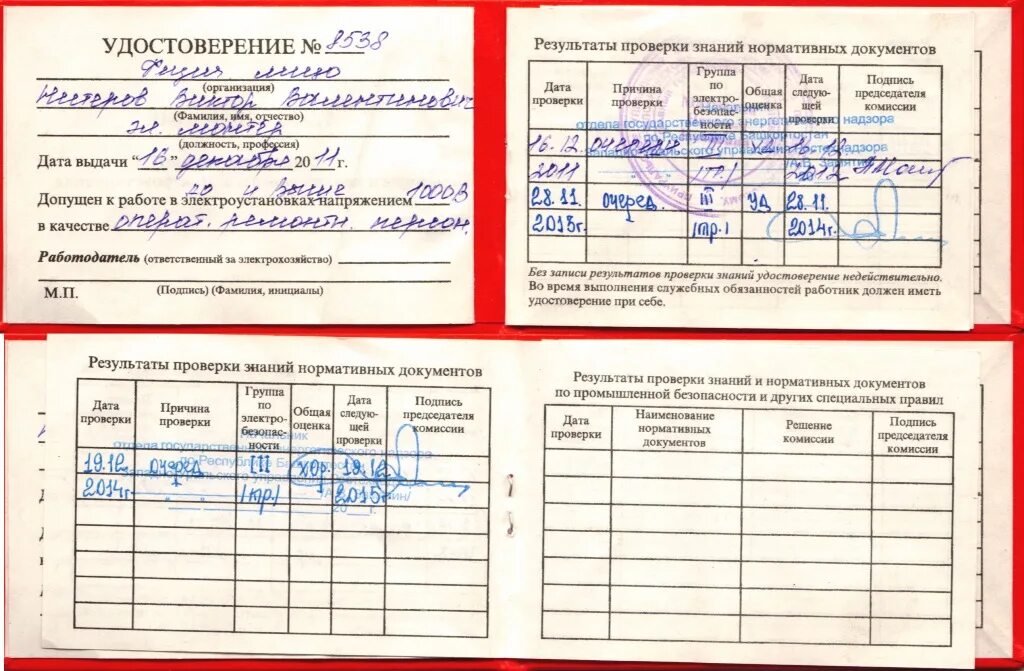 УДОСТОВЕРЕНИЕ № 8538
Физич лицо
(организация)
Нестеров Виктор Валентинович
(Фамилия, имя, отчество)
эл. монтер
(должность, профессия)
Дата выдачи "16" декабря 2011 г.
Допущен к работе в электроустановках напряжением до и выше 1000В
в качестве операт. ремонтн. персон.
Работодатель (ответственный за электрохозяйство)
М.П. (Подпись) (Фамилия, инициалы)
Результаты проверки знаний нормативных документов
Дата проверки Причина проверки Группа по электро-безопас-ности Общая оценка Дата следую-щей проверки Подпись председателя комиссии
отдела государственного энергетического надзора
по Республике Башкортостан
16.12 очередн III 16.12
2011 2012
28.11. очеред. III уд 28.11.
2013г. /тр.1 2014г.
Без записи результатов проверки знаний удостоверение недействительно.
Во время выполнения служебных обязанностей работник должен иметь
удостоверение при себе.
Результаты проверки знаний нормативных документов
Дата проверки Причина проверки Группа по электро-безопас-ности Общая оценка Дата следую-щей проверки Подпись председателя комиссии
Начальник
отдела государственного энергетического надзора
по Республике
19.12. очеред III хор. 19.12
2014г /тр./ 2015г
Результаты проверки знаний и нормативных документов
по промышленной безопасности и других специальных правил
Дата проверки Наименование нормативных документов Решение комиссии Подпись председателя комиссии